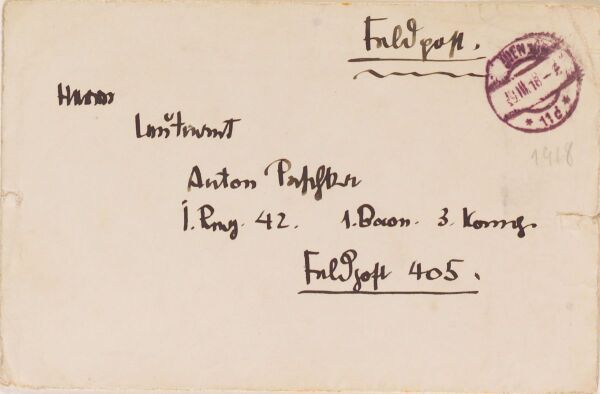 Feldpost.
WIEN
III.18
* 11d *
1918
Herrn
Leutnant
Anton Peschka
I. Reg. 42. 1. Baon. 3. Komp.
Feldpost 405.